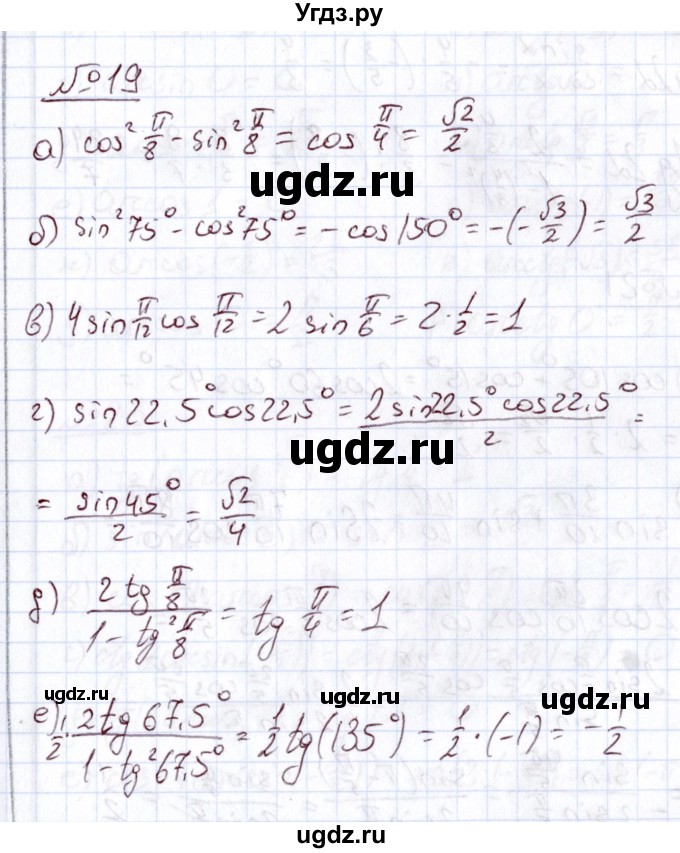 Угдз.ру
№19
а) cos² π/8 - sin² π/8 = cos π/4 = √2/2
ugdz.ru
б) sin²75° - cos²75° = - cos150° = -(-√3/2) = √3/2
в) 4 sin π/12 cos π/12 = 2 sin π/6 = 2·1/2 = 1
г) sin22,5° cos22,5° = 2 sin22,5° cos22,5°/2 =
ugdz.ru
= sin45°/2 = √2/4
д) 2 tg π/8 / 1 - tg² π/8 = tg π/4 = 1
ugdz.ru
ugdz.ru ugdz.ru
е) 1/2 · 2tg67,5° / 1 - tg²67,5° = 1/2 tg(135°) = 1/2 · (-1) = -1/2
ugdz.ru
ugdz.ru